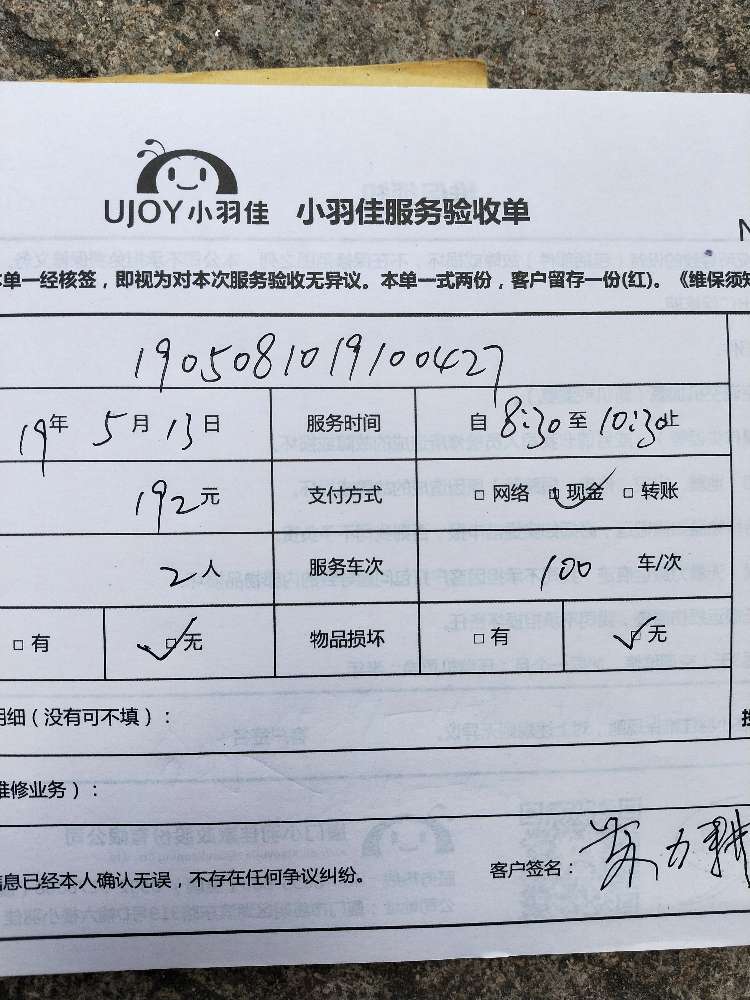 UJOY小羽佳 小羽佳服务验收单
N
本单一经核签，即视为对本次服务验收无异议。本单一式两份，客户留存一份(红)。《维保须知
1905081019100427
19年 5月 13日 服务时间 自 8:30 至 10:30 止
192元 支付方式 □ 网络 ☑ 现金 □ 转账
2人 服务车次 100 车/次
□ 有 ☑ 无 物品损坏 □ 有 ☑ 无
明细（没有可不填）：
维修业务）：
信息已经本人确认无误，不存在任何争议纠纷。 客户签名：